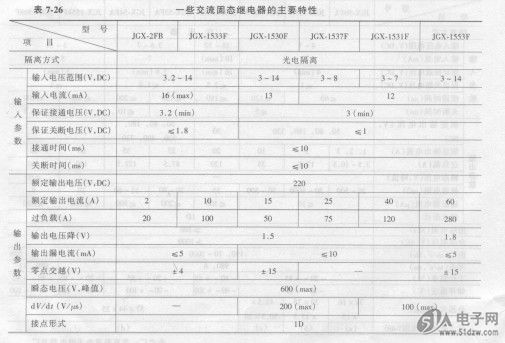 表 7-26 一些交流固态继电器的主要特性
型 号
项 目
JGX-2FB JGX-1533F JGX-1530F JGX-1537F JGX-1531F JGX-1553F
隔离方式 光电隔离
输入参数
输入电压范围(V,DC) 3.2~14 3~14 3~8 3~7 3~14
输入电流(mA) 16 (max) 13 12
保证接通电压(V,DC) 3.2 (min) 3 (min)
保证关断电压(V,DC) ≤1.8 ≤1
接通时间(ms) ≤10
关断时间(ms) ≤10
输出参数
额定输出电压(V,DC) 220
额定输出电流(A) 2 10 15 25 40 60
过负载(A) 20 100 50 75 120 280
输出电压降(V) 1.5 1.8
输出漏电流(mA) ≤5 ≤10 ≤5
零点交越(V) ±4 ±15 — ±15
瞬态电压(V,峰值) 600 (max)
dV/dt (V/μs) — 200 (max) 100 (max)
接点形式 1D
51A电子网
www.51dzw.com